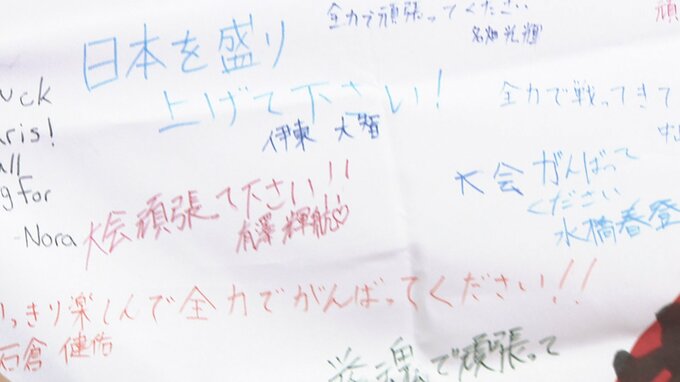 全力で頑張ってください
日本を盛り
上げて下さい!
伊東
全力で戦ってきて
uck
aris!
all
g for
-Nora
大会がんばって
ください
水橋春登
大会頑張て下さい!!
有澤輝航♡
っきり楽しんで全力でがんばってください!!
石倉 健佑
魂で頑張って